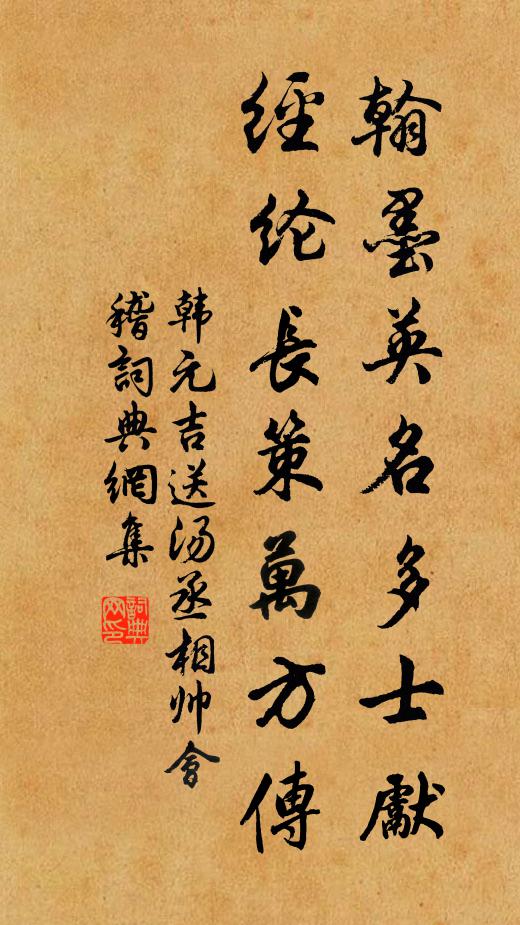 翰墨英名多士獻
經纶長策萬方傳
韩元吉送汤丞相帅會
稽詞典網集
詞典网印